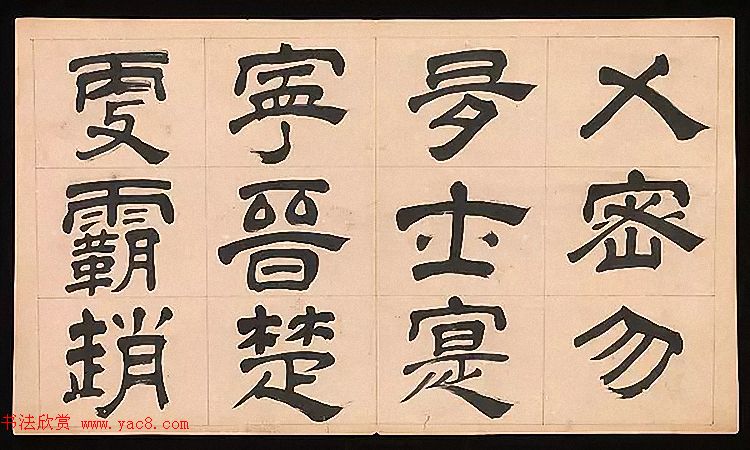 乂密勿
多士寔
寧晉楚
更霸趙
书法欣赏 www.yac8.com